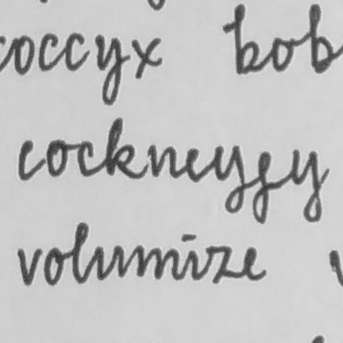 coccyx bob
cockneyfy
volumize